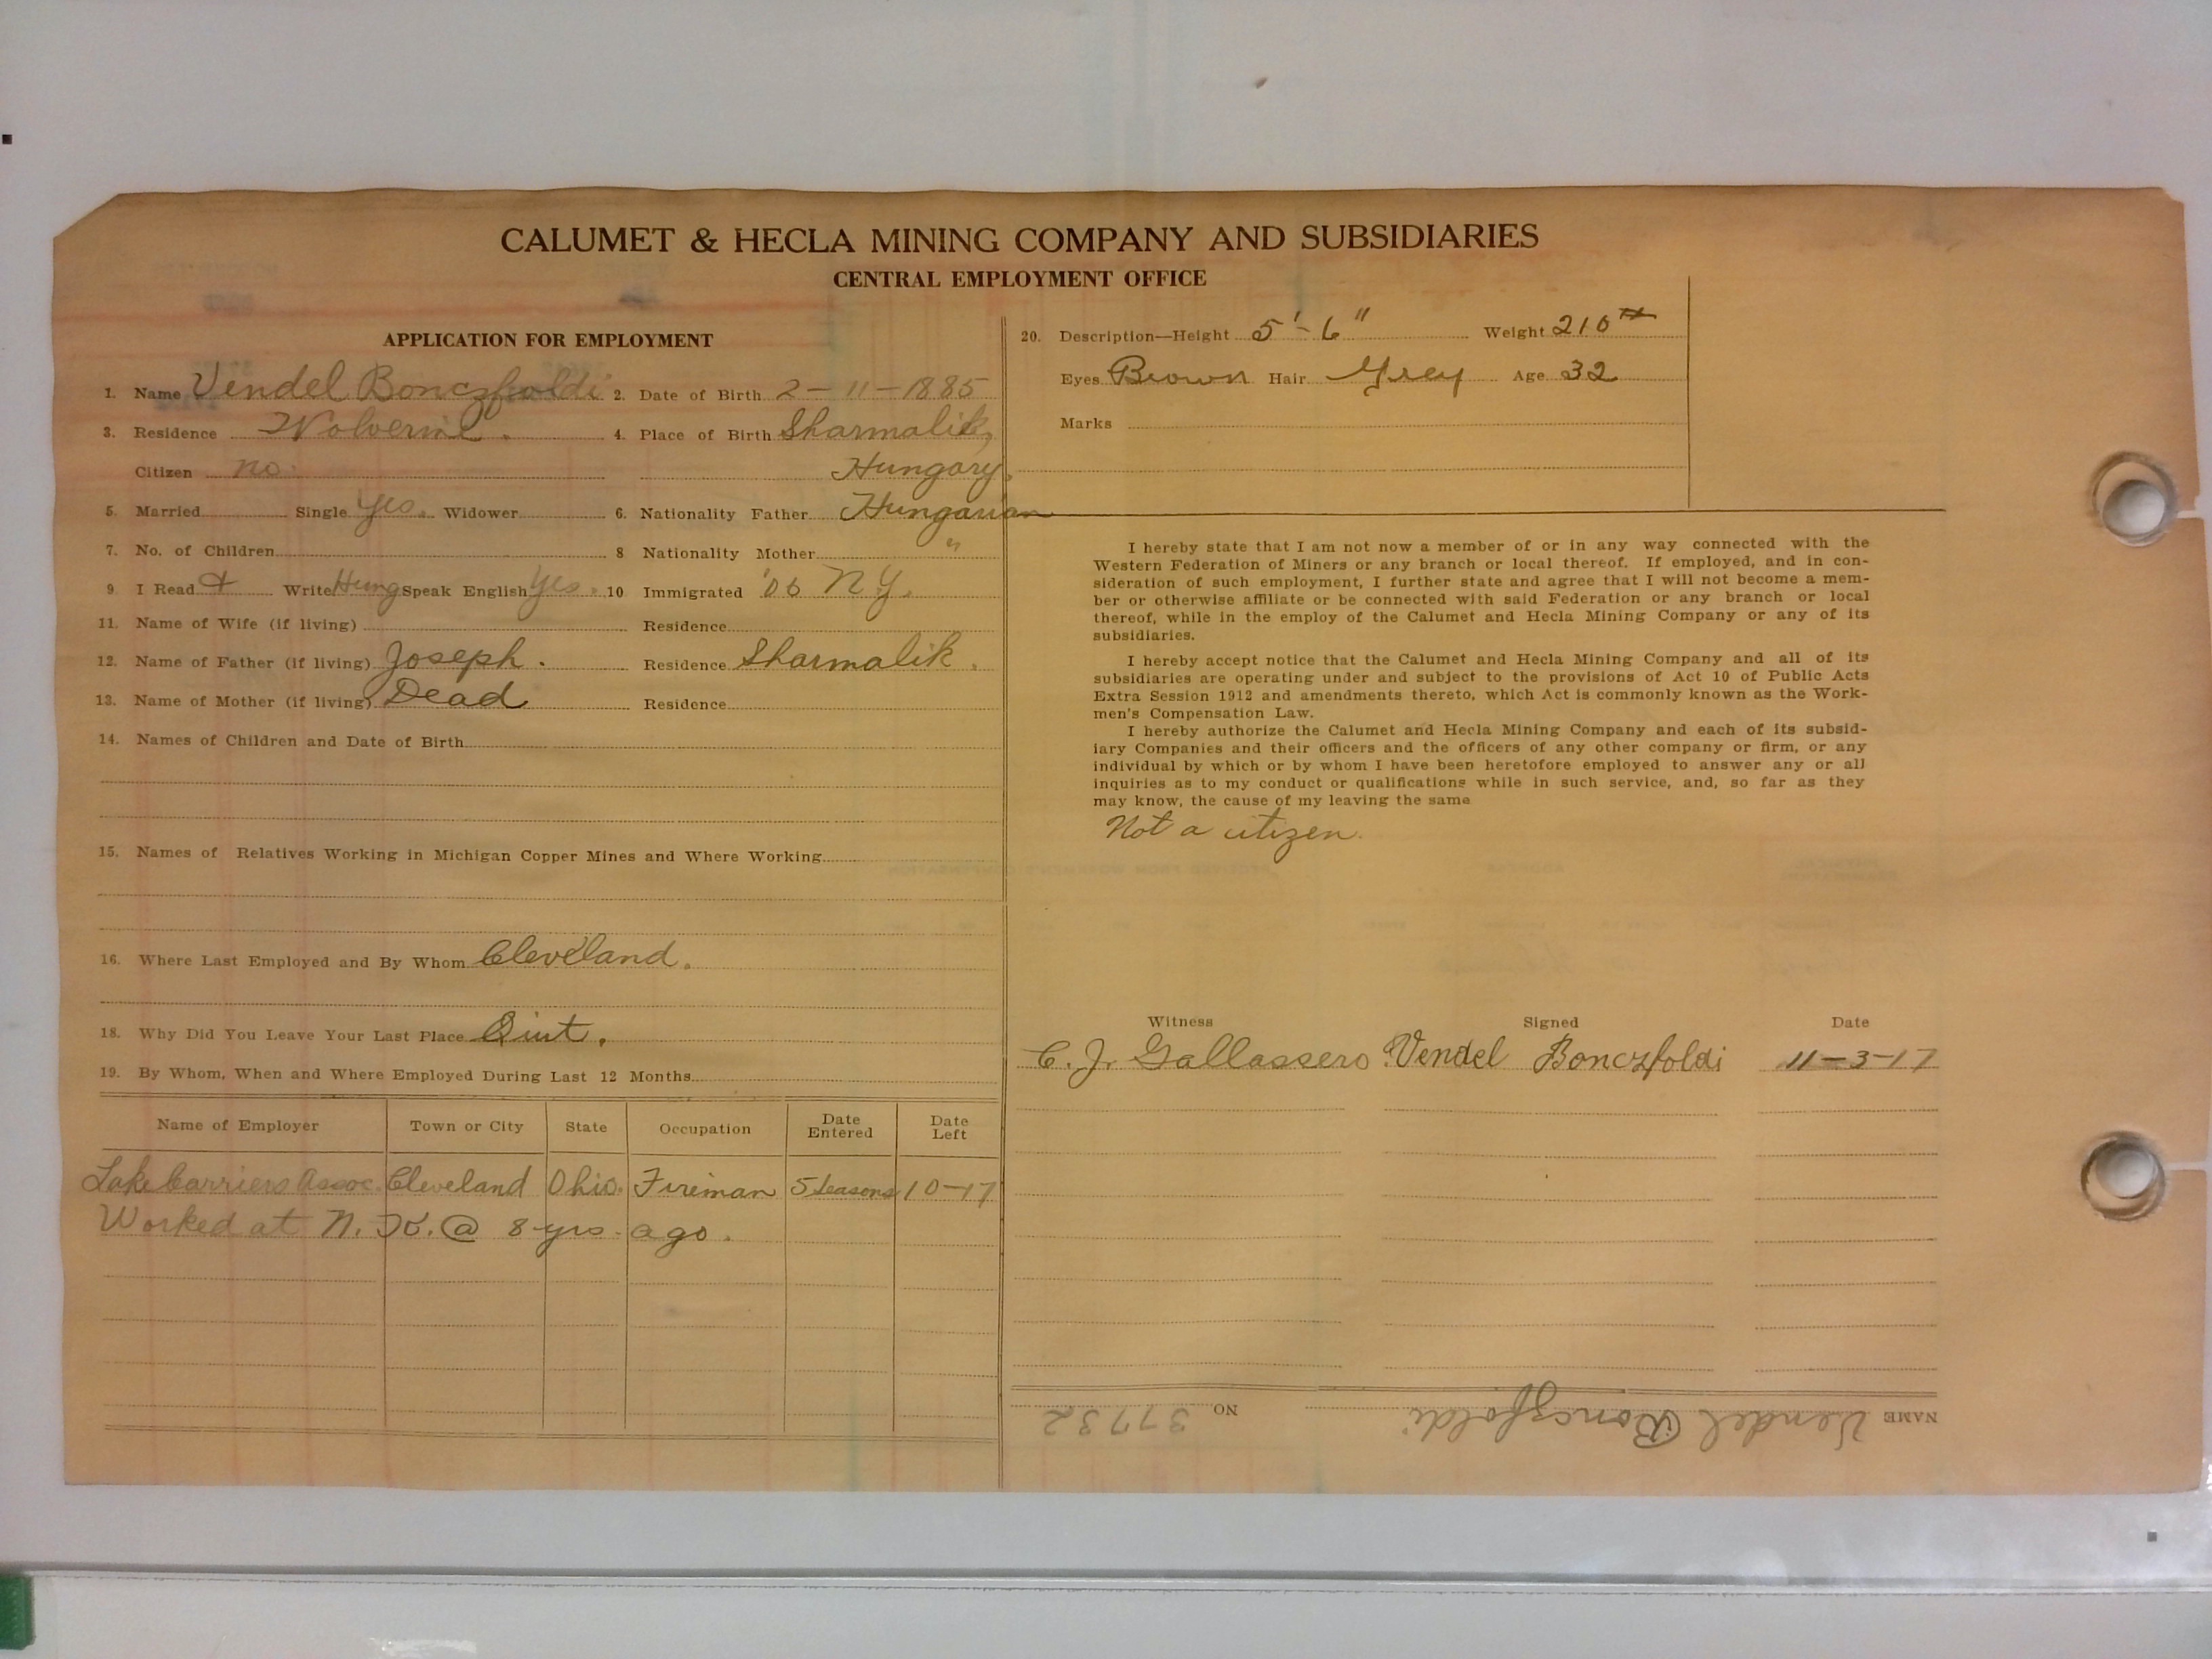 CALUMET & HECLA MINING COMPANY AND SUBSIDIARIES
CENTRAL EMPLOYMENT OFFICE
APPLICATION FOR EMPLOYMENT
1. Name Vendel Bonczfoldi 2. Date of Birth 2-11-1885
3. Residence Wolverine. 4. Place of Birth Sharmalik,
Citizen no. Hungary.
5. Married Single Yes. Widower 6. Nationality Father Hungarian
7. No. of Children 8 Nationality Mother "
9. I Read & Write Hung Speak English Yes. 10 Immigrated '06 N.Y.
11. Name of Wife (if living) Residence
12. Name of Father (if living) Joseph. Residence Sharmalik.
13. Name of Mother (if living) Dead Residence
14. Names of Children and Date of Birth
15. Names of Relatives Working in Michigan Copper Mines and Where Working
16. Where Last Employed and By Whom Cleveland.
18. Why Did You Leave Your Last Place Quit.
19. By Whom, When and Where Employed During Last 12 Months
Name of Employer Town or City State Occupation Date Entered Date Left
Lake Carriers Assoc. Cleveland Ohio. Fireman 5 Seasons 10-17
Worked at N. K. @ 8 yrs. ago.
20. Description—Height 5'-6" Weight 210#
Eyes Brown Hair Grey Age 32
Marks
I hereby state that I am not now a member of or in any way connected with the
Western Federation of Miners or any branch or local thereof. If employed, and in con-
sideration of such employment, I further state and agree that I will not become a mem-
ber or otherwise affiliate or be connected with said Federation or any branch or local
thereof, while in the employ of the Calumet and Hecla Mining Company or any of its
subsidiaries.
I hereby accept notice that the Calumet and Hecla Mining Company and all of its
subsidiaries are operating under and subject to the provisions of Act 10 of Public Acts
Extra Session 1912 and amendments thereto, which Act is commonly known as the Work-
men's Compensation Law.
I hereby authorize the Calumet and Hecla Mining Company and each of its subsid-
iary Companies and their officers and the officers of any other company or firm, or any
individual by which or by whom I have been heretofore employed to answer any or all
inquiries as to my conduct or qualifications while in such service, and, so far as they
may know, the cause of my leaving the same
Not a citizen.
Witness Signed Date
C. J. Gallassero Vendel Bonczfoldi 11-3-17
NAME Vendel Bonczfoldi NO 37732